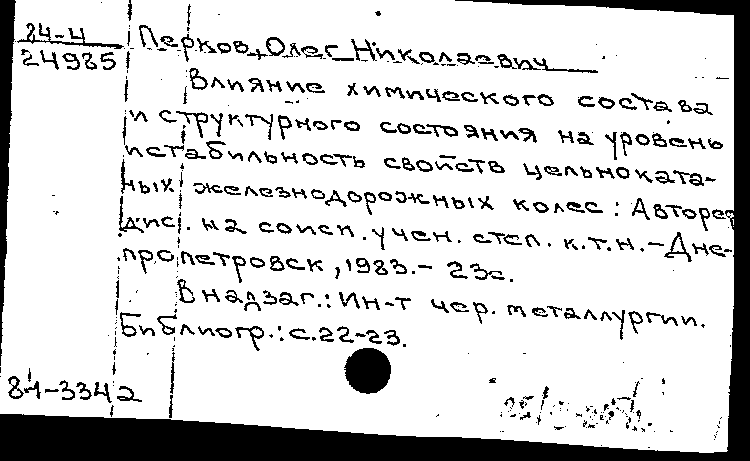 84-4
24985
Перков, Олег Николаевич
Влияние химического состава
и структурного состояния на уровень
и стабильность свойств цельноката-
ных железнодорожных колес: Автореф
дис. на соиск. учен. степ. к.т.н. - Дне-
пропетровск, 1983. - 23с.
В надзаг.: Ин-т чер. металлургии.
Библиогр.: с. 22-23.
84-3342